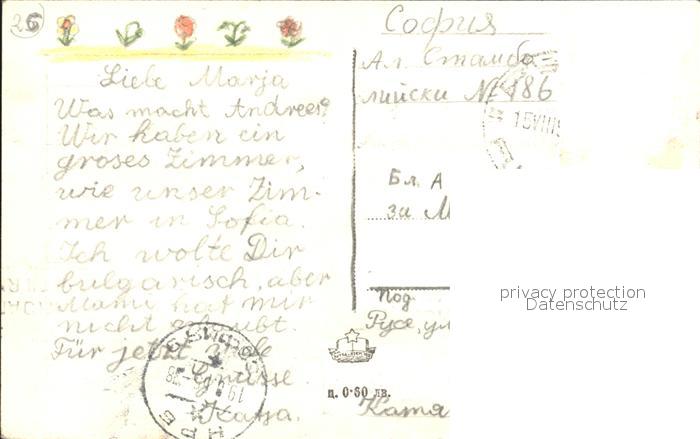 26
Liebe Marja
Was macht Andrees?
Wir haben ein
groses Zimmer,
wie unser Zim-
mer in Sofia.
Ich wolte Dir
bulgarisch, aber
Mami hat mir
nicht erlaubt.
Für jetzt viele
Grüsse
Katja.
София
Ал. Стамбо-
лийски № 186
15 VIII
Бл. А
за М
Под.
Русе, ул
ц. 0·60 лв.
Катя
privacy protection
Datenschutz